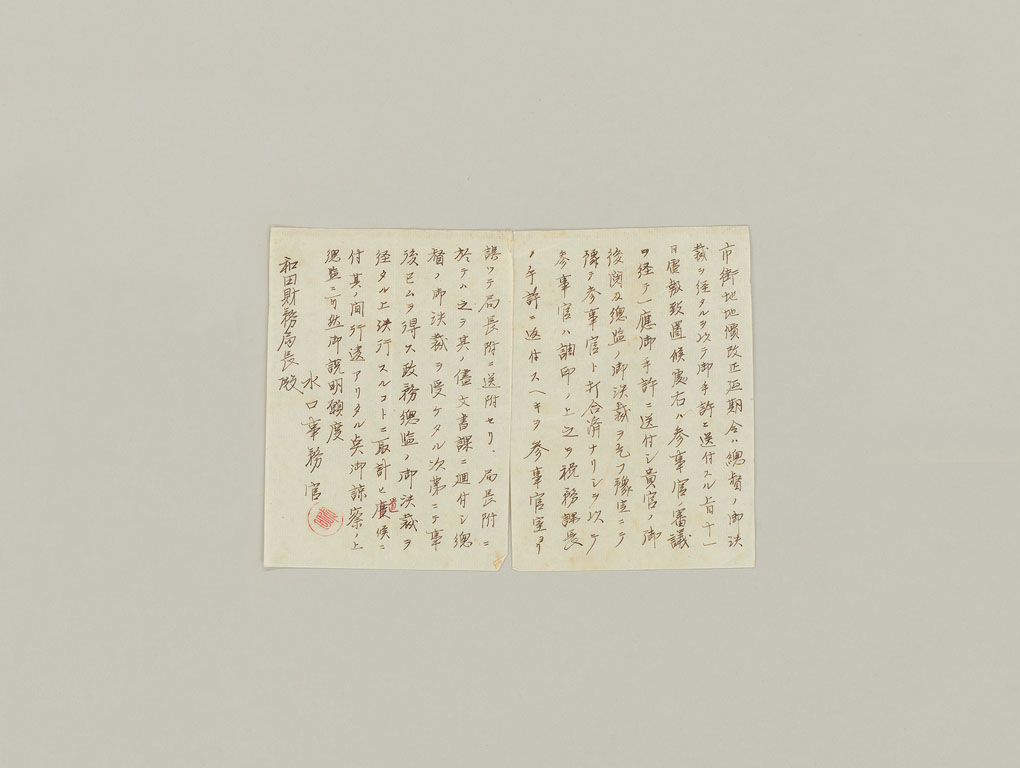 市街地地價改正延期令ハ總督ノ御決
裁ヲ経タルヲ以テ御手許ニ送付スル上首十一
日 致置候處右ハ参事官ノ審議
ヲ経テ一應御手許ニ送付シ貴官ノ御
後閲及總監ノ御決裁ヲ乞フ豫定ニテ
豫テ参事官ト打合済ナリシヲ以テ
参事官ハ調印ノ上之ヲ税務課長
ノ手許ニ返付スヘキヲ参事官室ヨリ
誤ツテ局長附ニ送附セリ、局長附ニ
於テハ之ヲ其ノ儘文書課ニ廻付シ總
督ノ御決裁ヲ受ケタル次第ニテ事
後已ムヲ得ス政務總監ノ御決裁ヲ
経タル上決行スルコトニ取計ヒ置候ニ
付其ノ間行違アリタル点御諒察ノ上
總監ニ可然御説明願度
水口事務官
和田財務局長殿